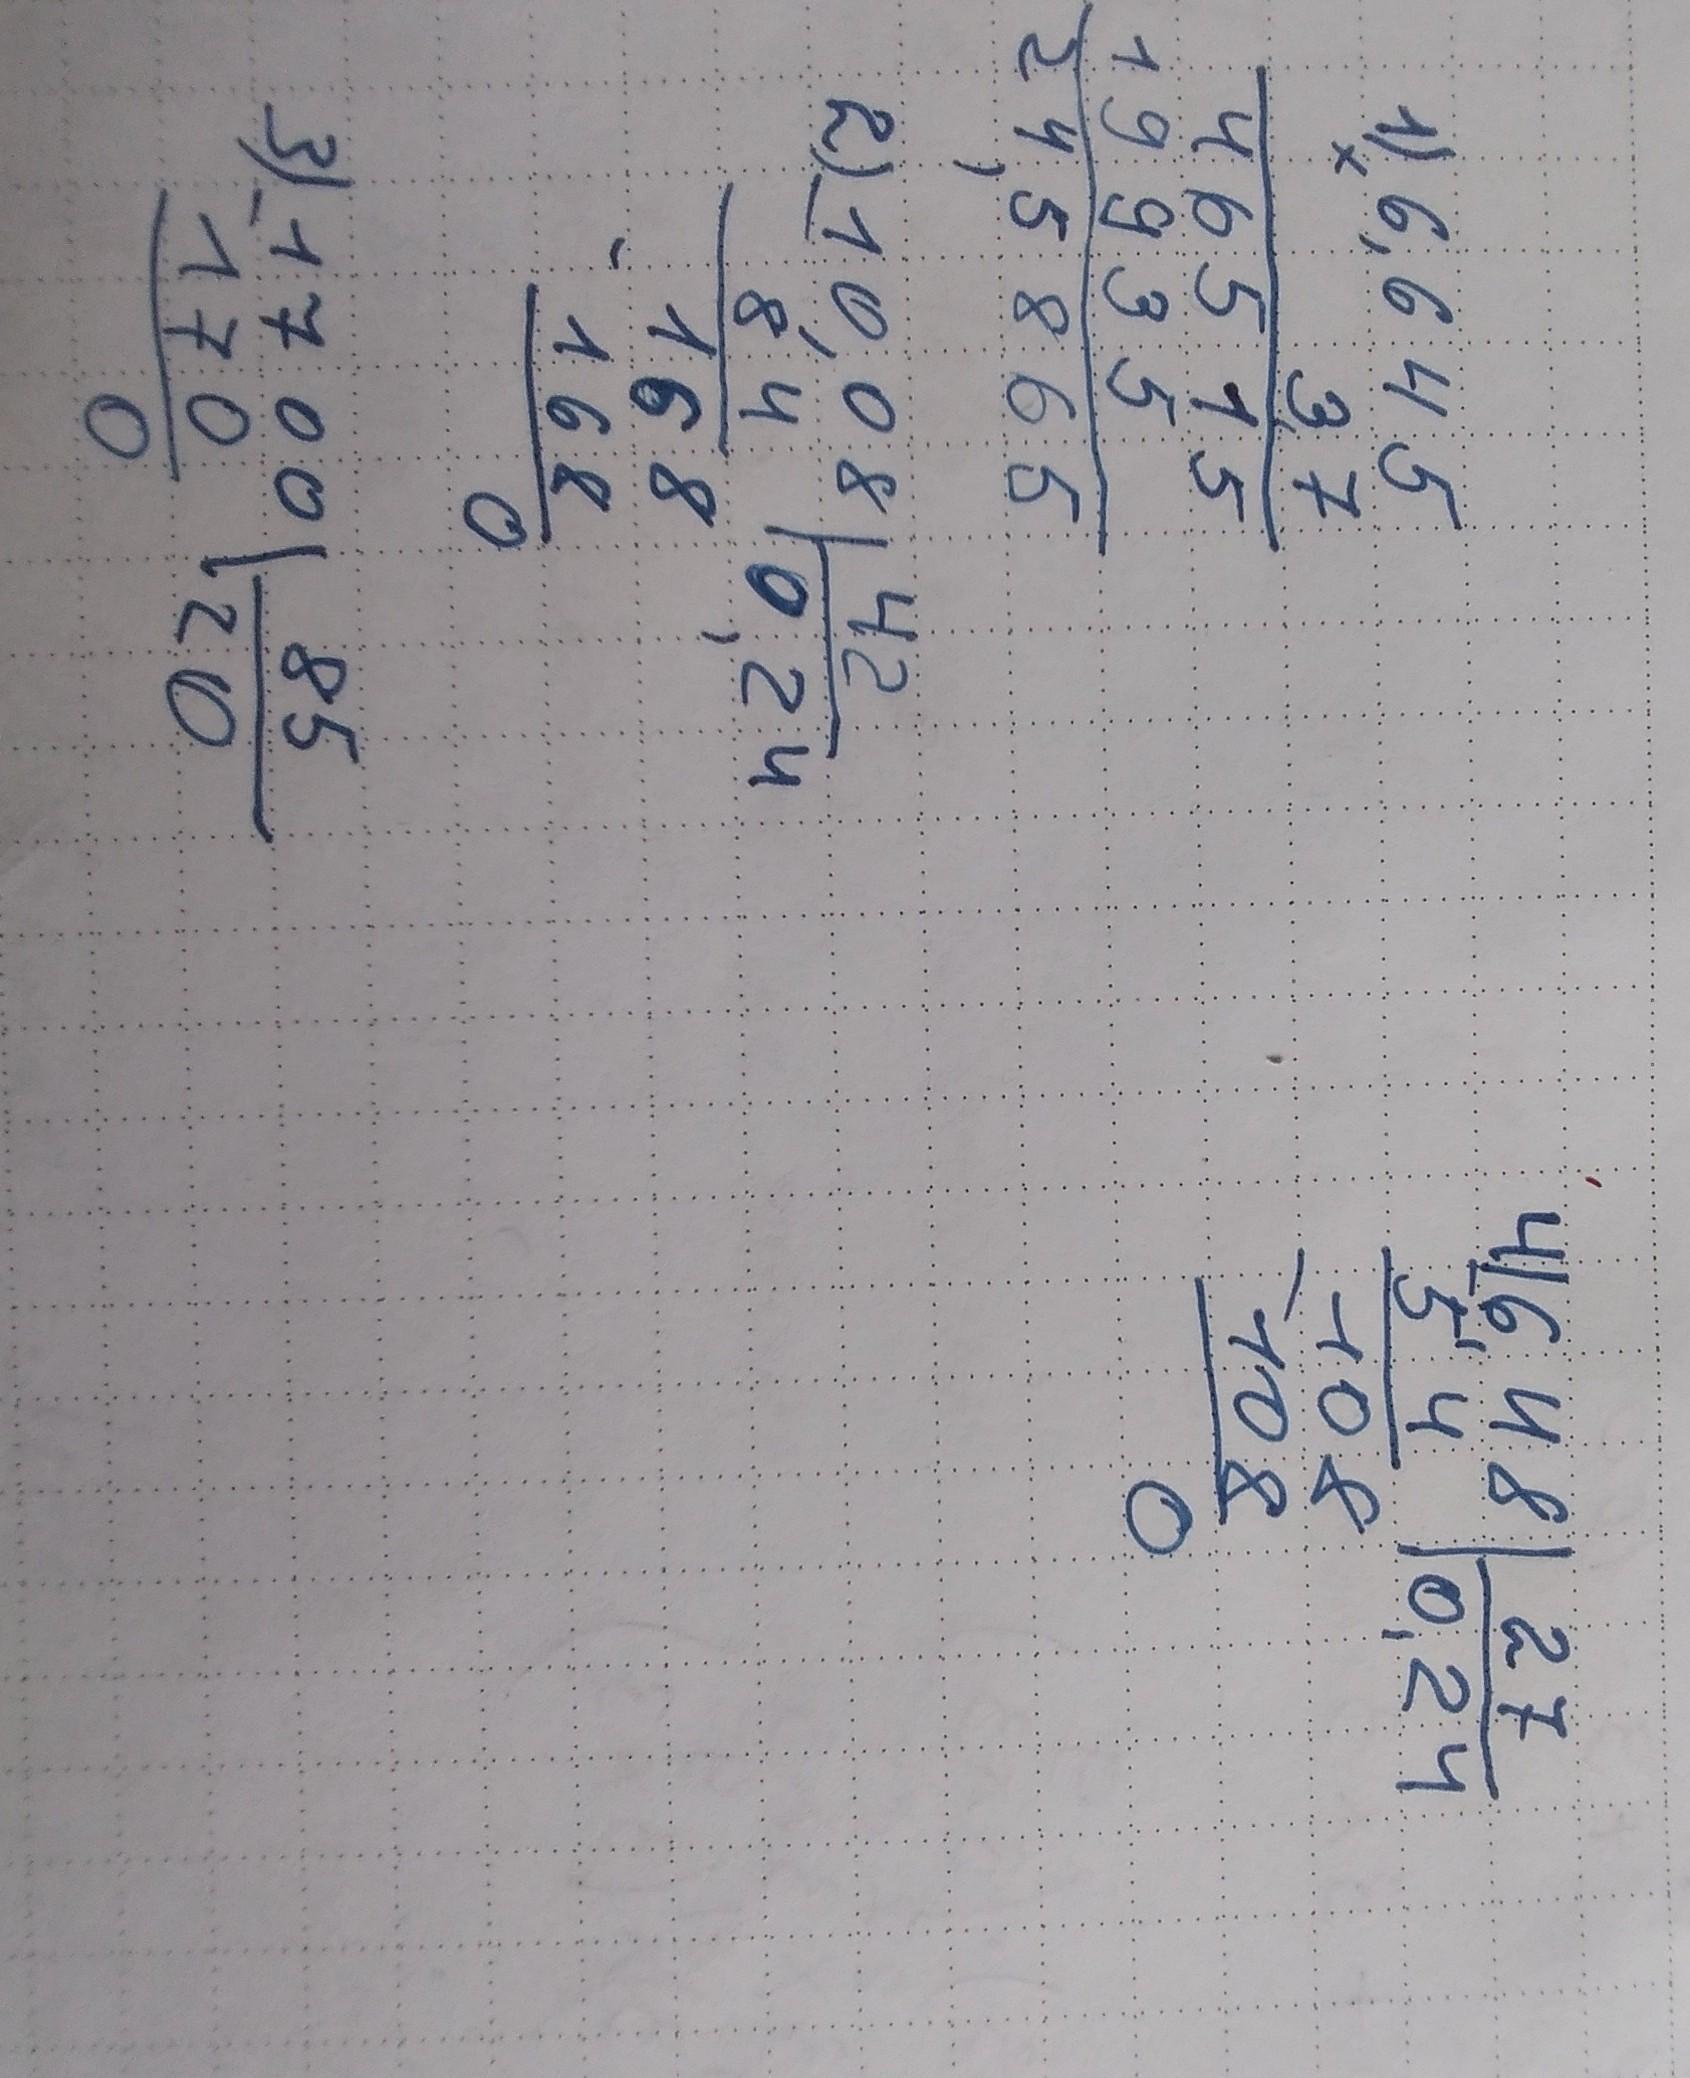 1) 6,645
× 3,7
46515
19935
24,5865
2) 10,08 | 42
84 0,24
168
168
0
3) 1700 | 85
170 20
0
4) 6,48 | 27
54 0,24
108
108
0